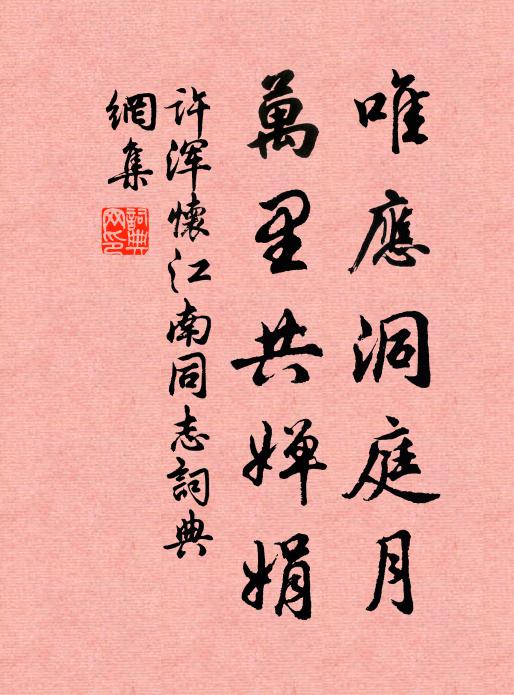 唯應洞庭月
萬里共嬋娟
許渾懷江南同志詞典
網集
詞典網印